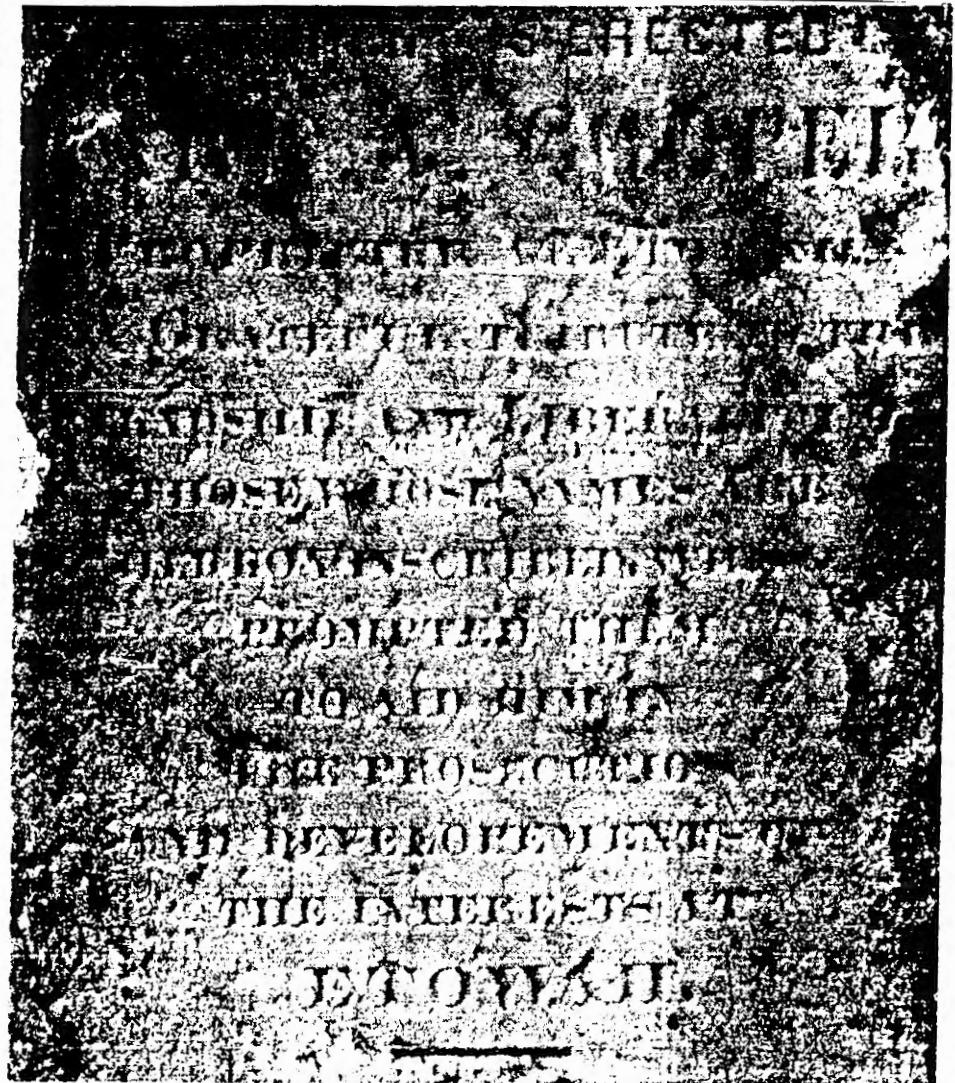 ERECTED
A. COOPER
GRATEFUL TRIBUTE TO THE
AND LIBERALITY
THOSE WHOSE NAMES ARE
HEREON INSCRIBED, WHICH
PROMPTED THEM
TO AID HIM IN
THE PROSECUTION
AND DEVELOPEMENT OF
THE INTERESTS AT
ETOWAH.